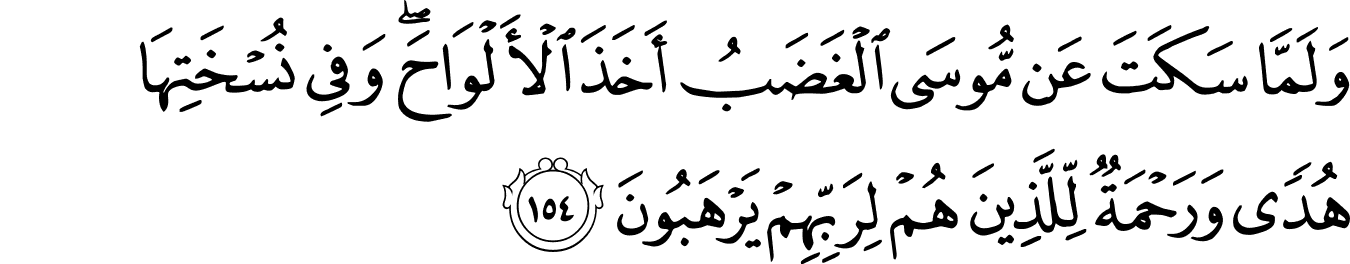 وَلَمَّا سَكَتَ عَن مُّوسَى ٱلْغَضَبُ أَخَذَ ٱلْأَلْوَاحَ ۖ وَفِي نُسْخَتِهَا
هُدًى وَرَحْمَةٌ لِّلَّذِينَ هُمْ لِرَبِّهِمْ يَرْهَبُونَ ١٥٤